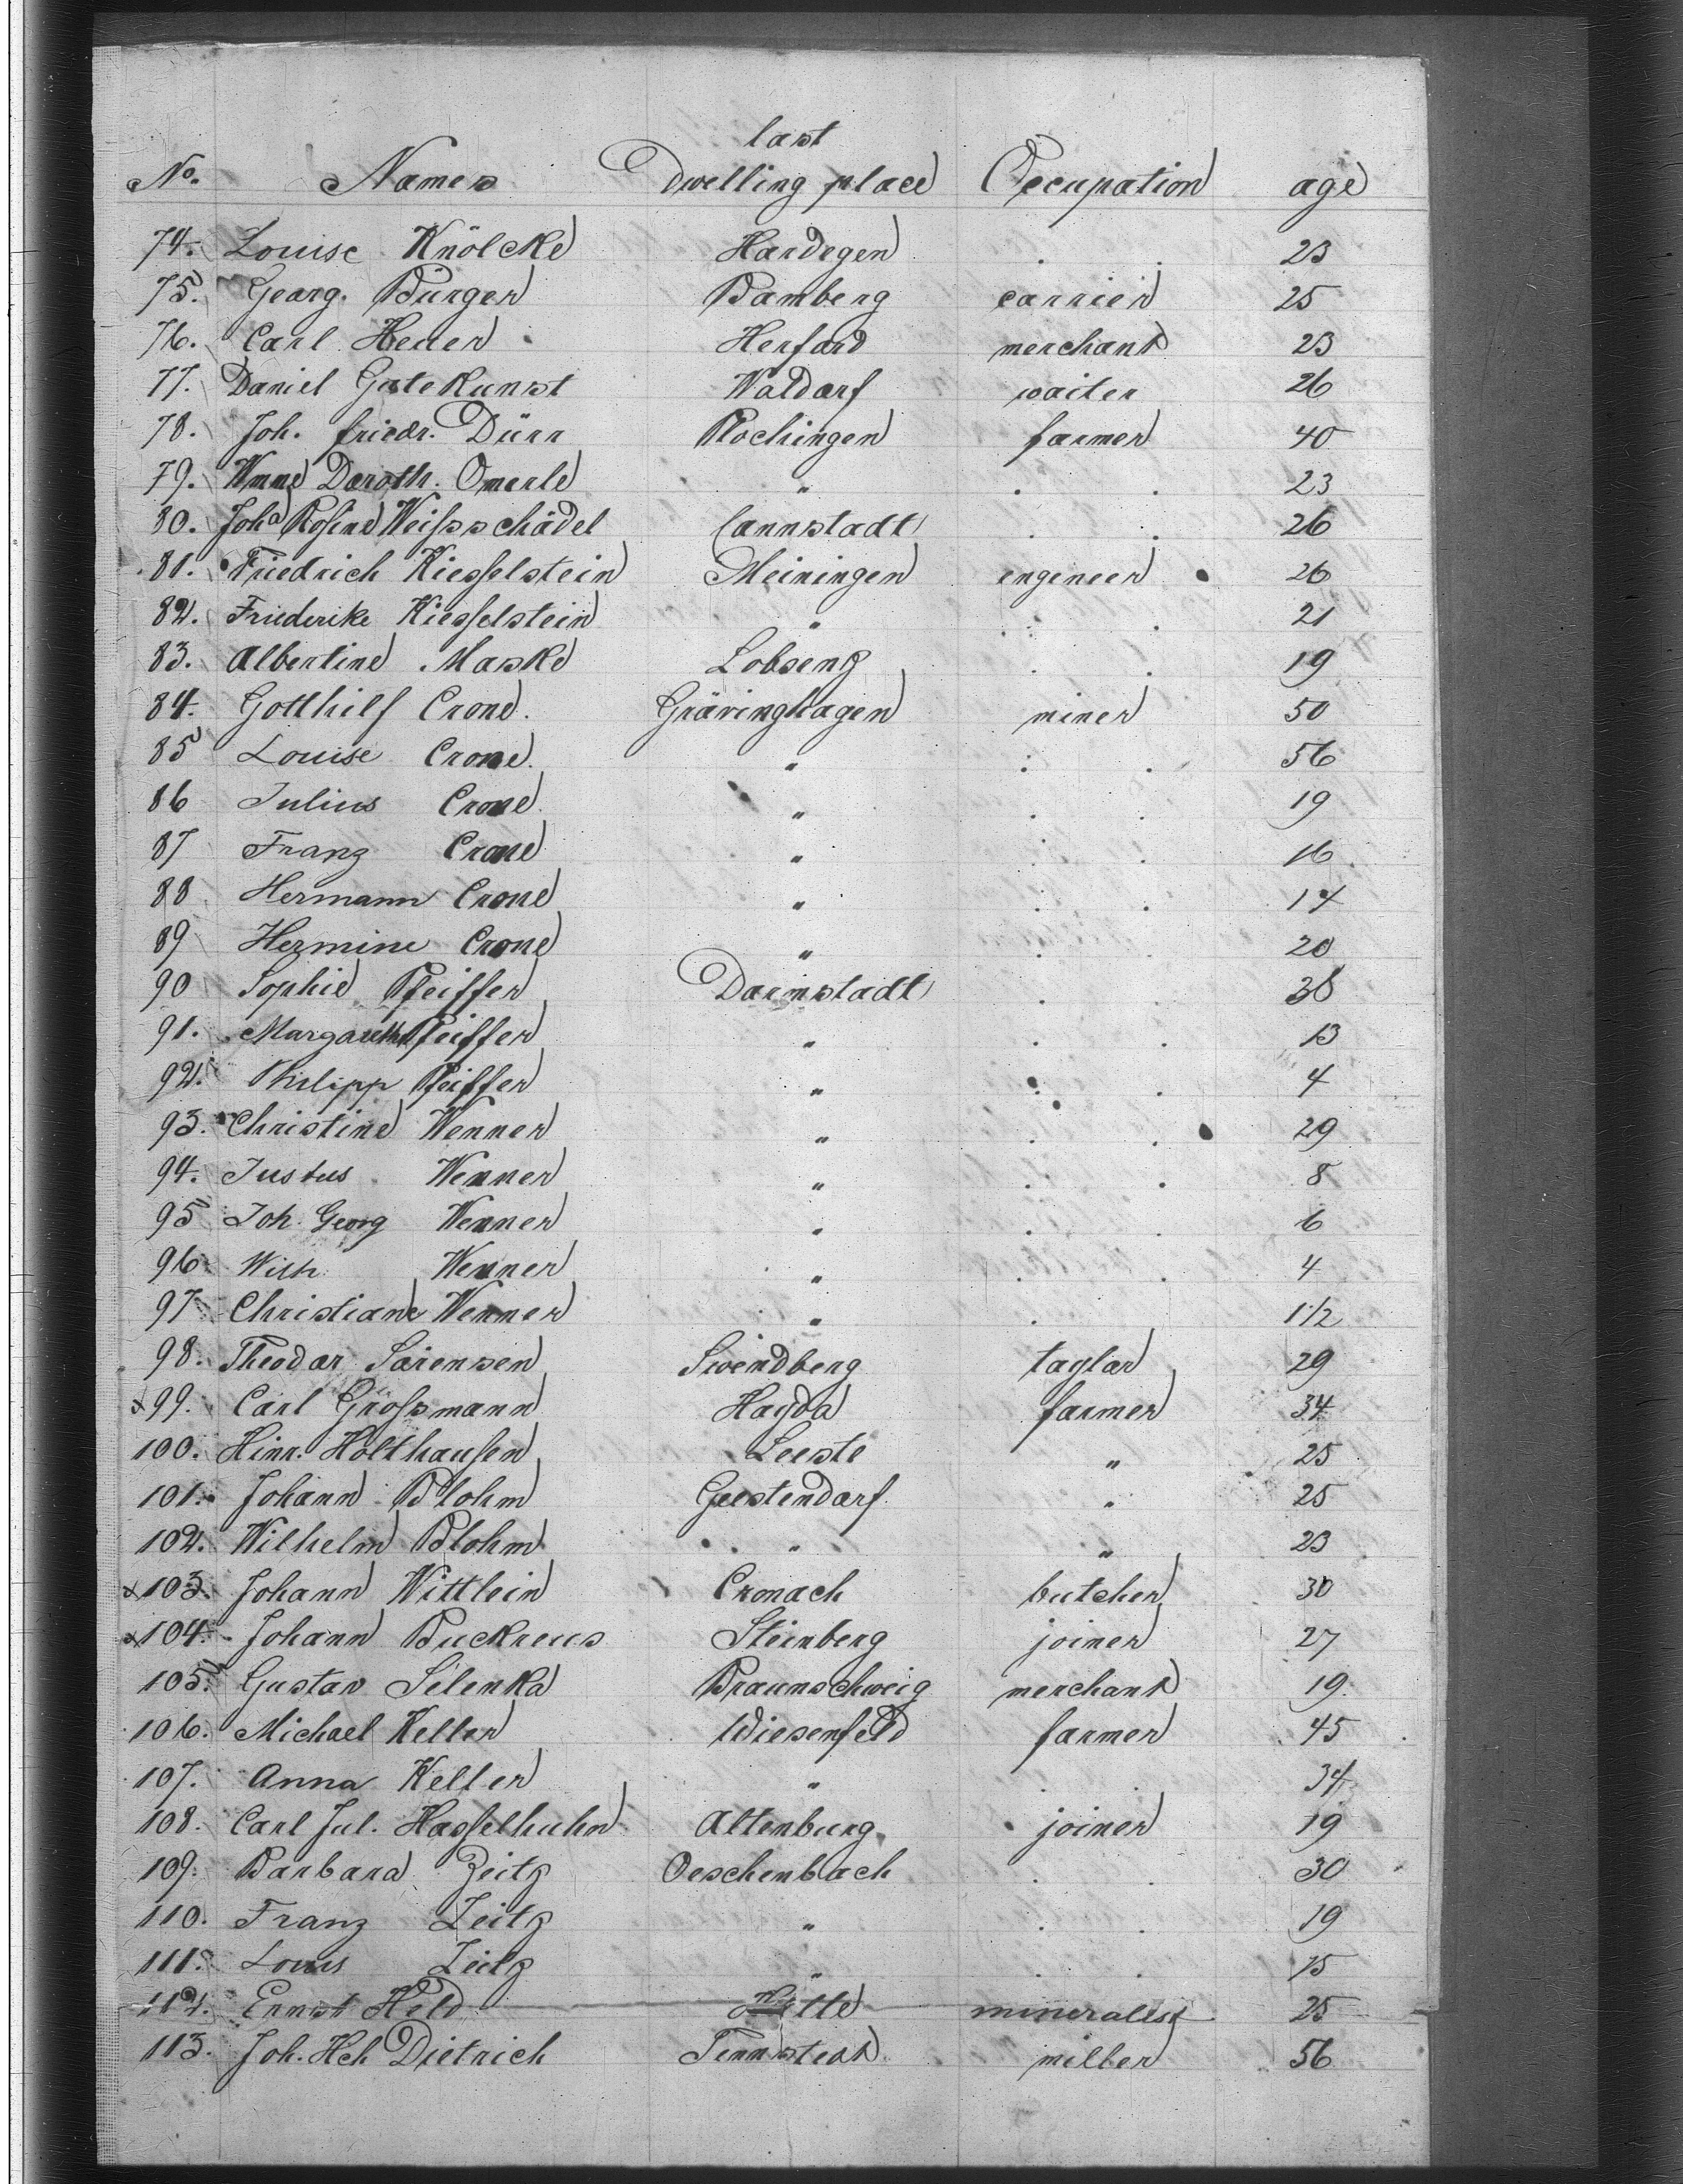 last
No. Names Dwelling place Occupation age
74. Louise Knölcke Hardegen . . 23
75. Georg. Bürger Bamberg carrier 25
76. Carl Heuer Herford merchant 23
77. Daniel Gutekunst Waldorf waiter 26
78. Joh. friedr. Dürr Plochingen farmer 40
79. Doroth. Omerle " . . 23
80. Joha Rosine Weissschädel Cannstadt . . 26
81. Friedrich Kiesselstein Meiningen engeneer 26
82. Friederike Kiesselstein " . . 21
83. Albertine Maske Lobsenz . . 19
84. Gotthilf Crone. Grävinghagen miner 50
85 Louise Crone. " . . 56
86 Julius Crone. " . . 19
87 Franz Crone " . . 16
88 Hermann Crone " . . 14
89 Hermine Crone " . . 20
90 Sophie Pfeiffer Darmstadt . . 38
91. Margareth Pfeiffer " . . 13
92. Philipp Pfeiffer " . . 4
93. Christine Wenner " . . 29
94. Justus Wenner " . . 8
95 Joh. Georg Wenner " . . 6
96 Wilh. Wenner " . . 4
97 Christiane Wenner " . 1 1/2
98. Theodor Sörensen Swendberg taylor 29
x 99. Carl Grossmann Hayda farmer 34
100. Hinr. Holthausen Leeste " 25
101. Johann Blohm Geestendorf " 25
102. Wilhelm Blohm " " 23
x 103. Johann Wittlein Cronach butcher 30
x 104. Johann Buckreus Steinberg joiner 27
105. Gustav Selenka Braunschweig merchant 19.
106. Michael Keller Wiesenfeld farmer 45
107. Anna Keller " . 34
108. Carl Jul. Hasselhuhn Altenburg joiner 19
109. Barbara Zeitz Oeschenbach . . 30
110. Franz Zeitz " . . 19
111. Louis Zeitz " . . 15
112. Ernst Held mineralist 25
113. Joh. Hch Dietrich Tennstedt miller 56